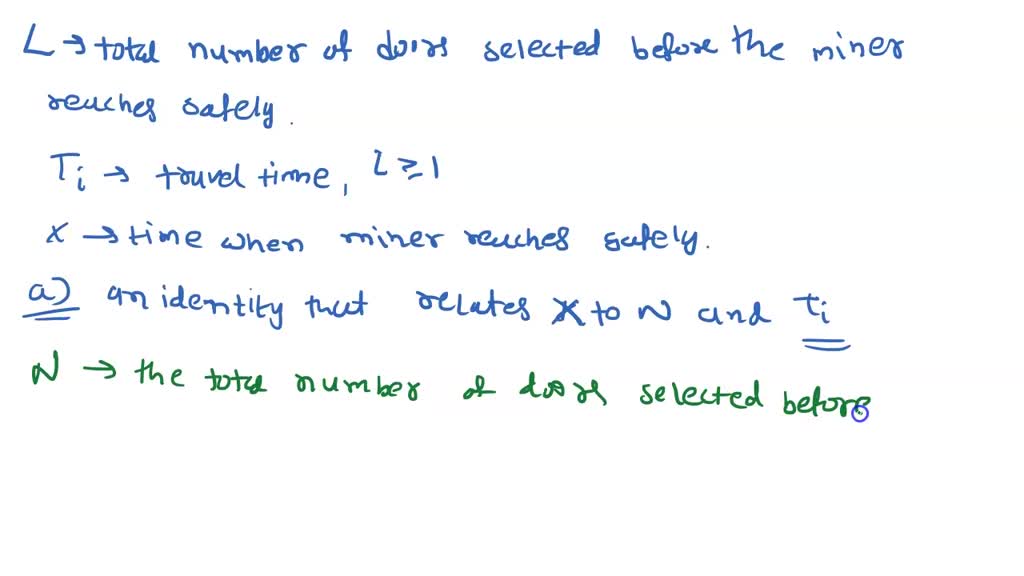 L → total number of doors selected before the miner
reaches safely.
Ti → travel time, i ≥ 1
X → time when miner reaches safely.
a) an identity that relates X to N and Ti
N → the total number of doors selected before